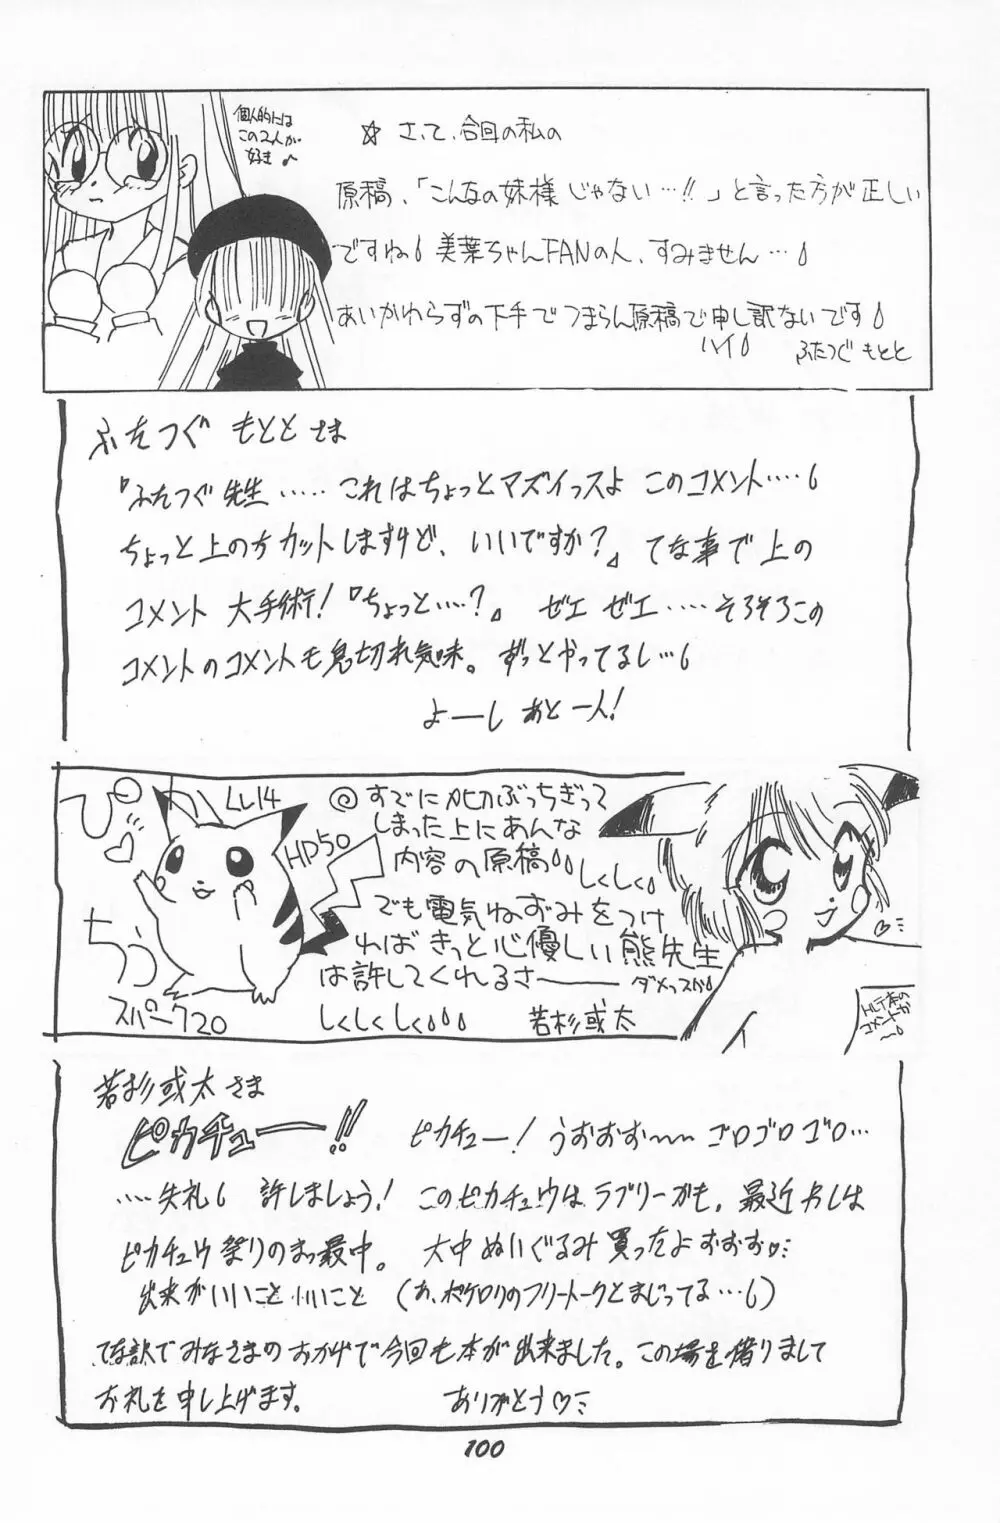 個人的には
この2人が
好き♪
☆ さて、今回の私の
原稿、「こんなの妹様じゃない…!!」と言った方が正しい
ですね 美葉ちゃんFANの人、すみません…
あいかわらずの下手でつまらん原稿で申し訳ないです
ハイ
ふたつぐ もとと
ふたつぐ もととさま
『ふたつぐ先生……これはちょっとマズイっスよ このコメント……
ちょっと上の方カットしますけど、いいですか?』てな事で上の
コメント 大手術!『ちょっと……?』 ゼエ ゼエ……そろそろこの
コメントのコメントも息切れ気味。ずっとやってるし…
よーし あと一人!
ぴ
♡
ちう
LL14
HP50
スパーク20
◎すでに〆切ぶっちぎって
しまった上にあんな
内容の原稿
しくしく
でも電気ねずみをつけ
ればきっと心優しい熊先生
は許してくれるさーー
ダメっスか
しくしくしく
若杉或太
イ
TRLT本の
コメントか
〜
若杉或太さま
ピカチュー!!
ピカチュー! うおおお〜〜 ゴロゴロゴロ…
……失礼 許しましょう! このピカチュウはラブリーかも。最近わしは
ピカチュウ祭りのまっ最中。 大中ぬいぐるみ買ったよおおお♡
出来がいいこと いいこと (あ、ポケロリのフリートークとまじってる…)
てな訳でみなさまのおかげで今回も本が出来ました。この場を借りまして
お礼を申し上げます。 ありがとう♡
100